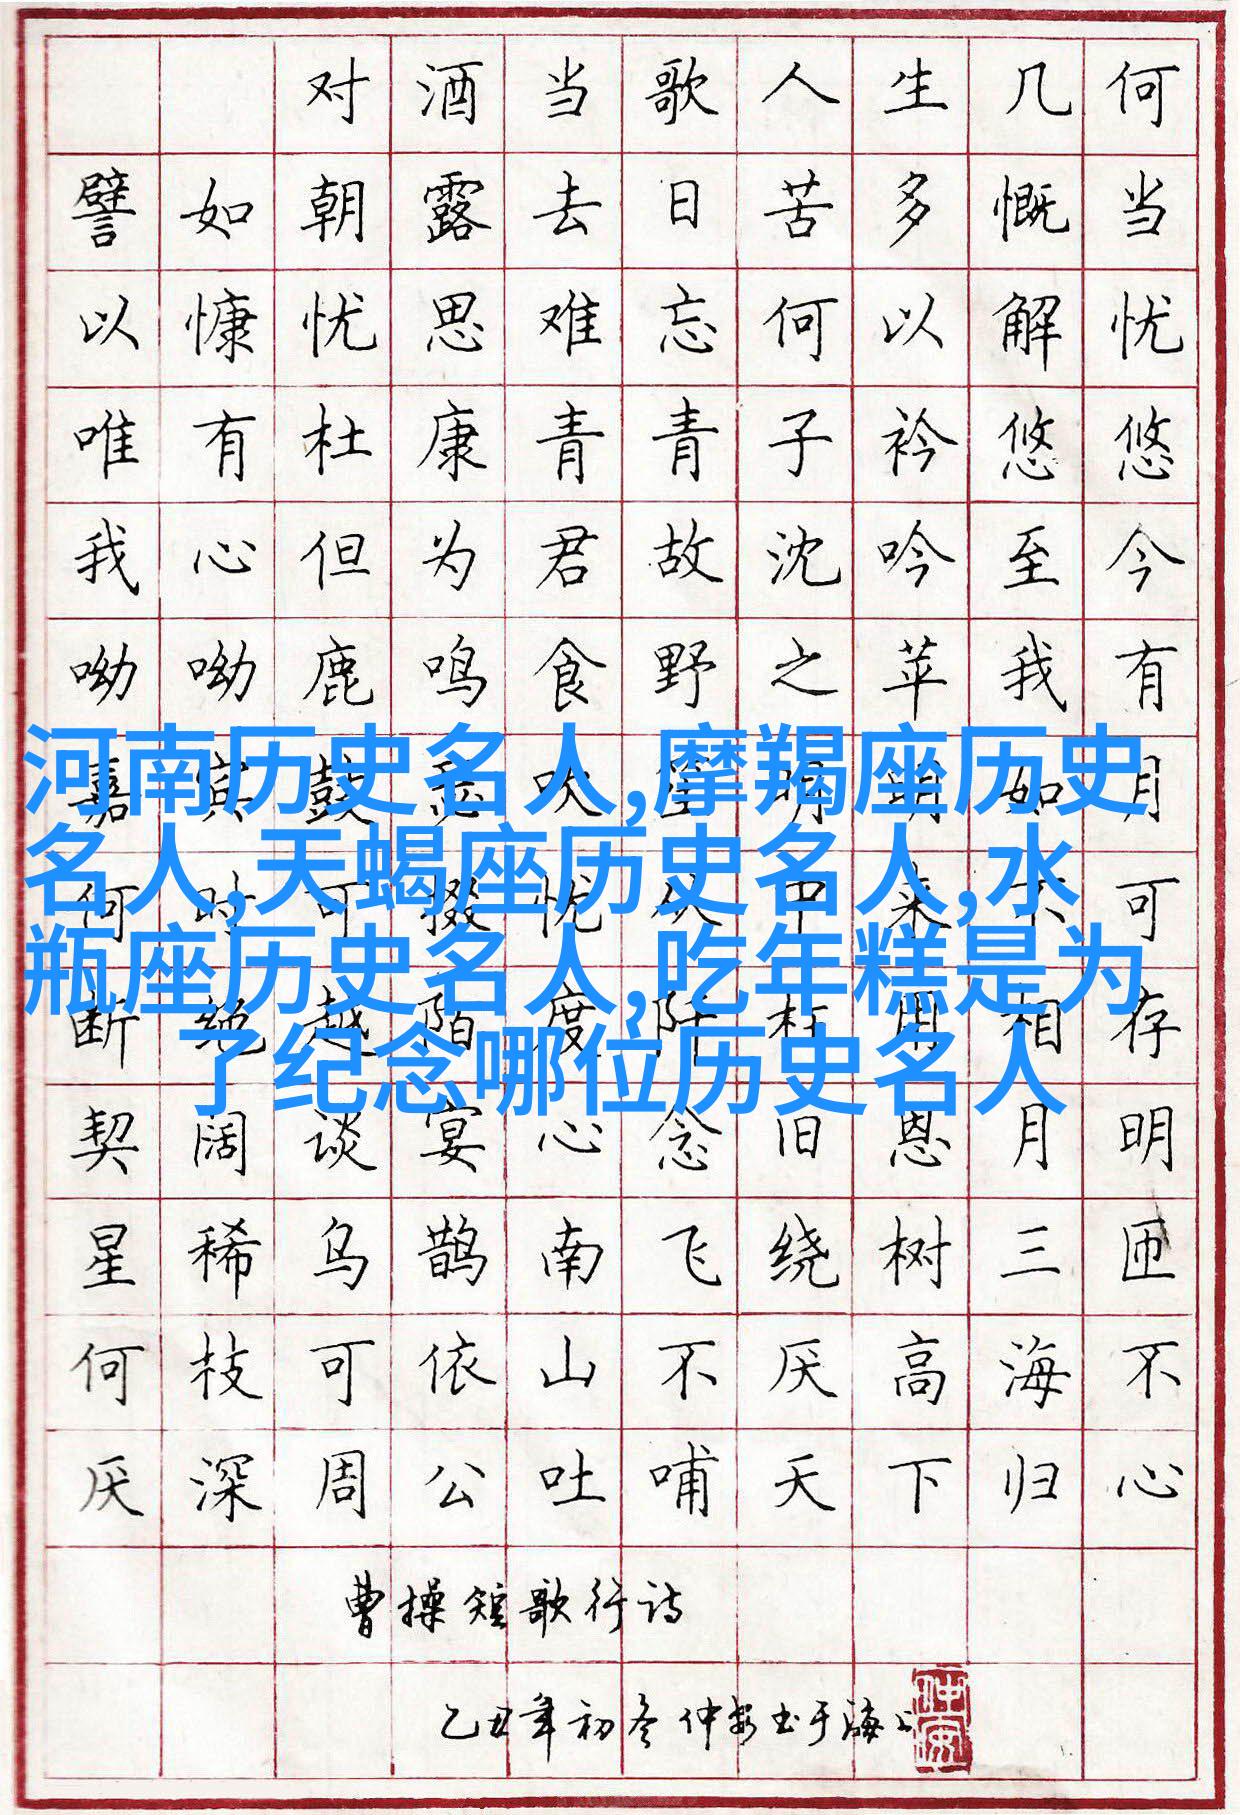 对酒当歌人生几何
譬如朝露去日苦多慨当
以慷忧思难忘何以解忧
唯有杜康青青子衿悠悠
我心但为君故沈吟至今
呦呦鹿鸣食野之苹我有
嘉宾鼓瑟吹笙明明如月
何时可掇忧从中来不可
断绝越陌度阡枉用相存
契阔谈宴心念旧恩月明
星稀乌鹊南飞绕树三匝
何枝可依山不厌高海不
厌深周公吐哺天下归心
曹操短歌行诗
乙丑年初冬仲安书于海上
仲安
河南历史名人,摩羯座历史
名人,天蝎座历史名人,水
瓶座历史名人,吃年糕是为
了纪念哪位历史名人